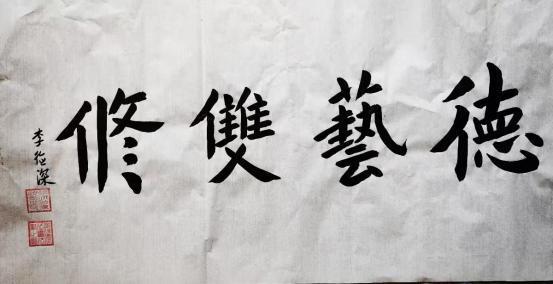 德藝雙修
李德深